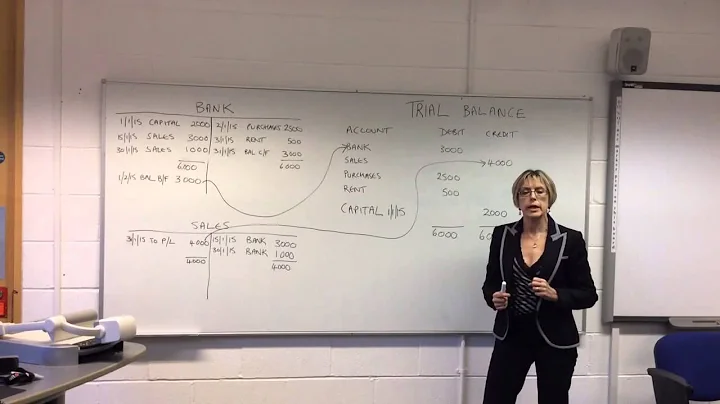 BANK
1/1/15 CAPITAL 2000 2/1/15 PURCHASES 2500
15/1/15 SALES 3000 3/1/15 RENT 500
30/1/15 SALES 1000 31/1/15 BAL C/F 3000
6000 6000
1/2/15 BAL B/F 3000
SALES
31/1/15 TO P/L 4000 15/1/15 BANK 3000
30/1/15 BANK 1000
4000 4000
TRIAL BALANCE
ACCOUNT DEBIT CREDIT
BANK 3000
SALES 4000
PURCHASES 2500
RENT 500
CAPITAL 1/1/15 2000
6000